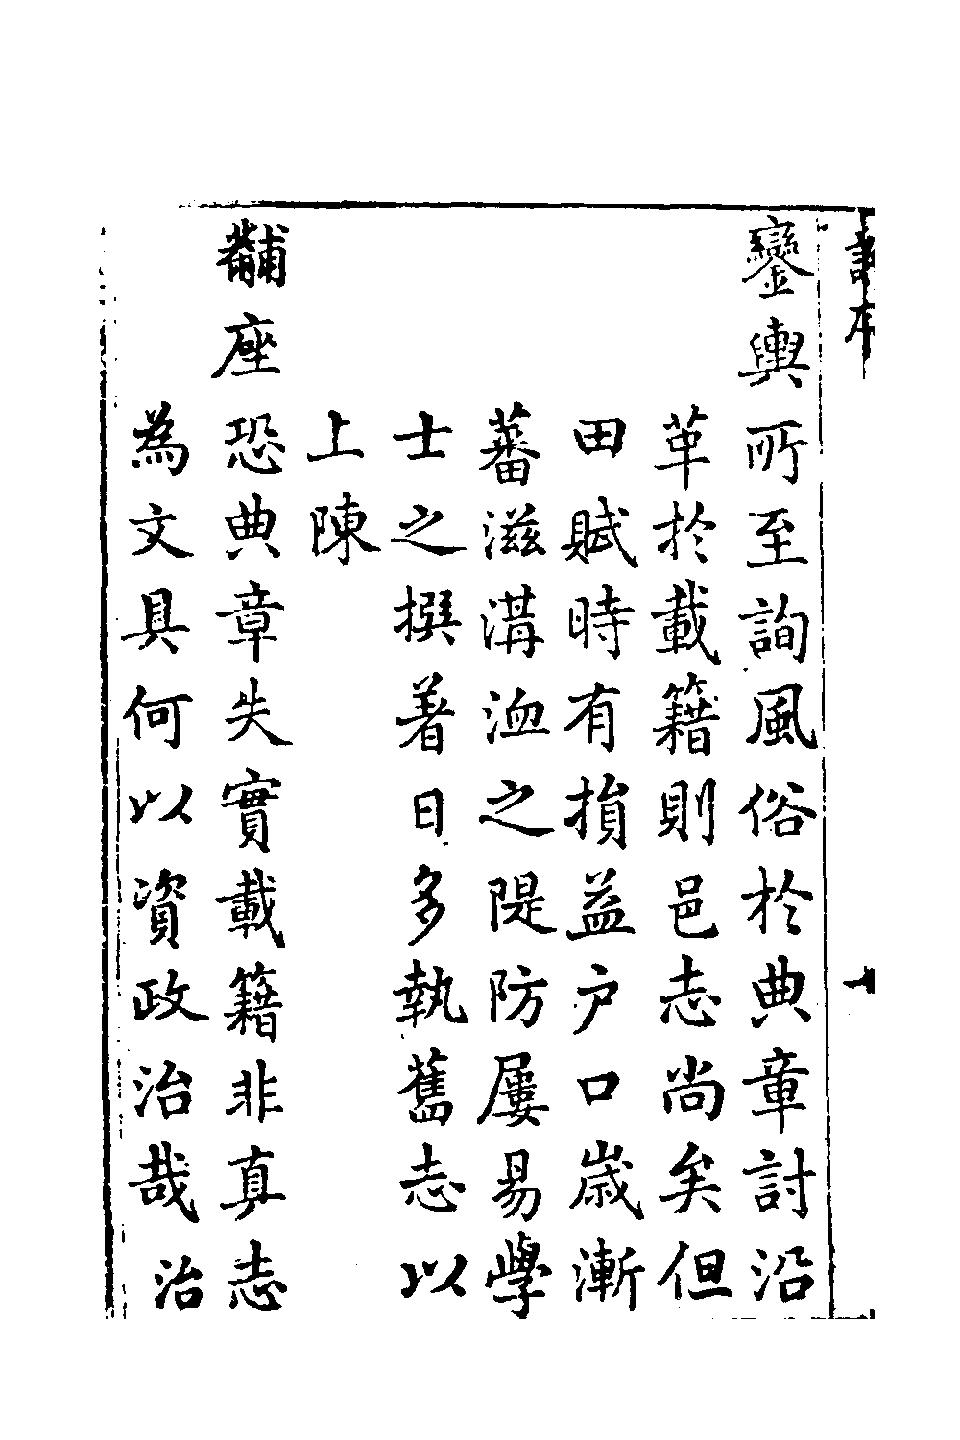 鑾輿所至詢風俗於典章討沿
革於載籍則邑志尚矣但
田賦時有損益戶口歲漸
蕃滋溝洫之隄防屢易學
士之撰著日多執舊志以
上陳
黼座恐典章失實載籍非真志
為文具何以資政治哉治